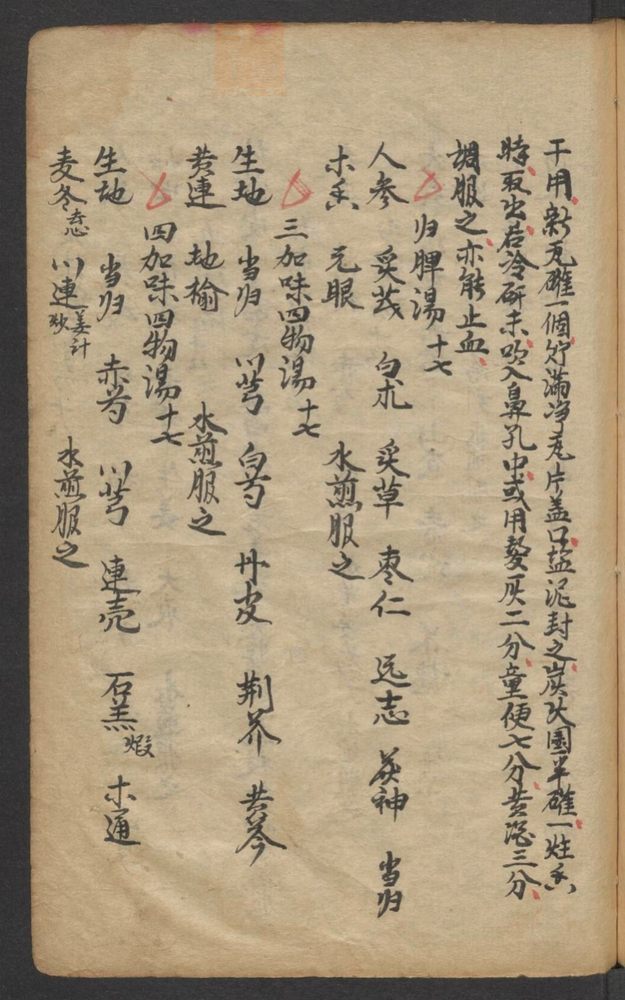 干用新瓦碓一個貯滿净尾片盖口塩泥封之炭火圍半碓一炷香
時取出君冷研末吹入鼻孔中或用髮灰二分童便七分黄酒三分
調服之亦能止血
归脾湯十七
人参 炙芪 白朮 炙草 枣仁 远志 茯神 当归
木香 元眼 水煎服之
三加味四物湯十七
生地 当归 川芎 白芍 丹皮 荆芥 黄芩
黄連 地榆 水煎服之
四加味四物湯十七
生地 当归 赤芍 川芎 連壳 石羔煆 木通
麦冬去心 川連姜汁炒 水煎服之